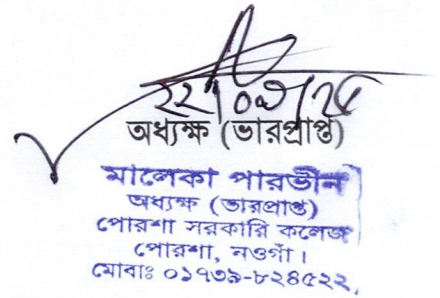 ২২/০৯/২৫
অধ্যক্ষ (ভারপ্রাপ্ত)
মালেকা পারভীন
অধ্যক্ষ (ভারপ্রাপ্ত)
পোরশা সরকারি কলেজ
পোরশা, নওগাঁ।
মোবাঃ ০১৭৩৯-৮২৪৫২২,